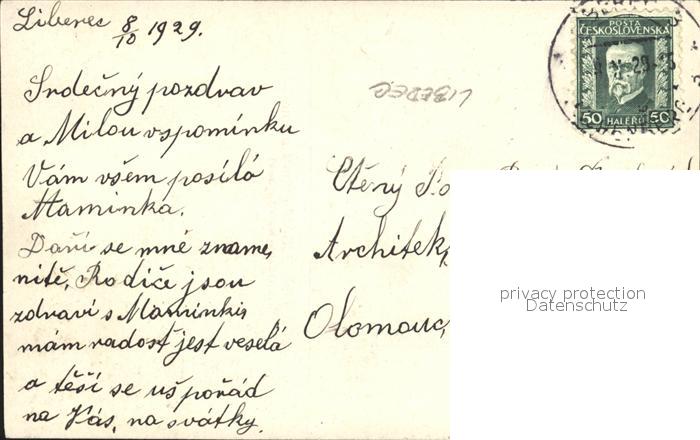 Liberec 8/10 1929.
Srdečný pozdrav
a Milou vspomínku
Vám všem posílá
Maminka.
Daří se mně zname,
nitě, Rodiče jsou
zdraví s Maminkú,
mám radost jest veselá
a těší se už pořád
na Vás, na svátky.
LIBEREC
POSTA
ČESKOSLOVENSKÁ
50 HALEŘŮ 50
Ctěný
Architek
Olomouc,
privacy protection
Datenschutz